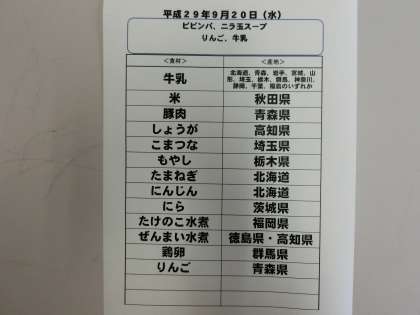 平成29年9月20日（水）
ビビンバ、ニラ玉スープ
りんご、牛乳
＜食材＞ ＜産地＞
牛乳 北海道、青森、岩手、宮城、山
形、埼玉、栃木、群馬、神奈川、
静岡、千葉、福島のいずれか
米 秋田県
豚肉 青森県
しょうが 高知県
こまつな 埼玉県
もやし 栃木県
たまねぎ 北海道
にんじん 北海道
にら 茨城県
たけのこ水煮 福岡県
ぜんまい水煮 徳島県・高知県
鶏卵 群馬県
りんご 青森県